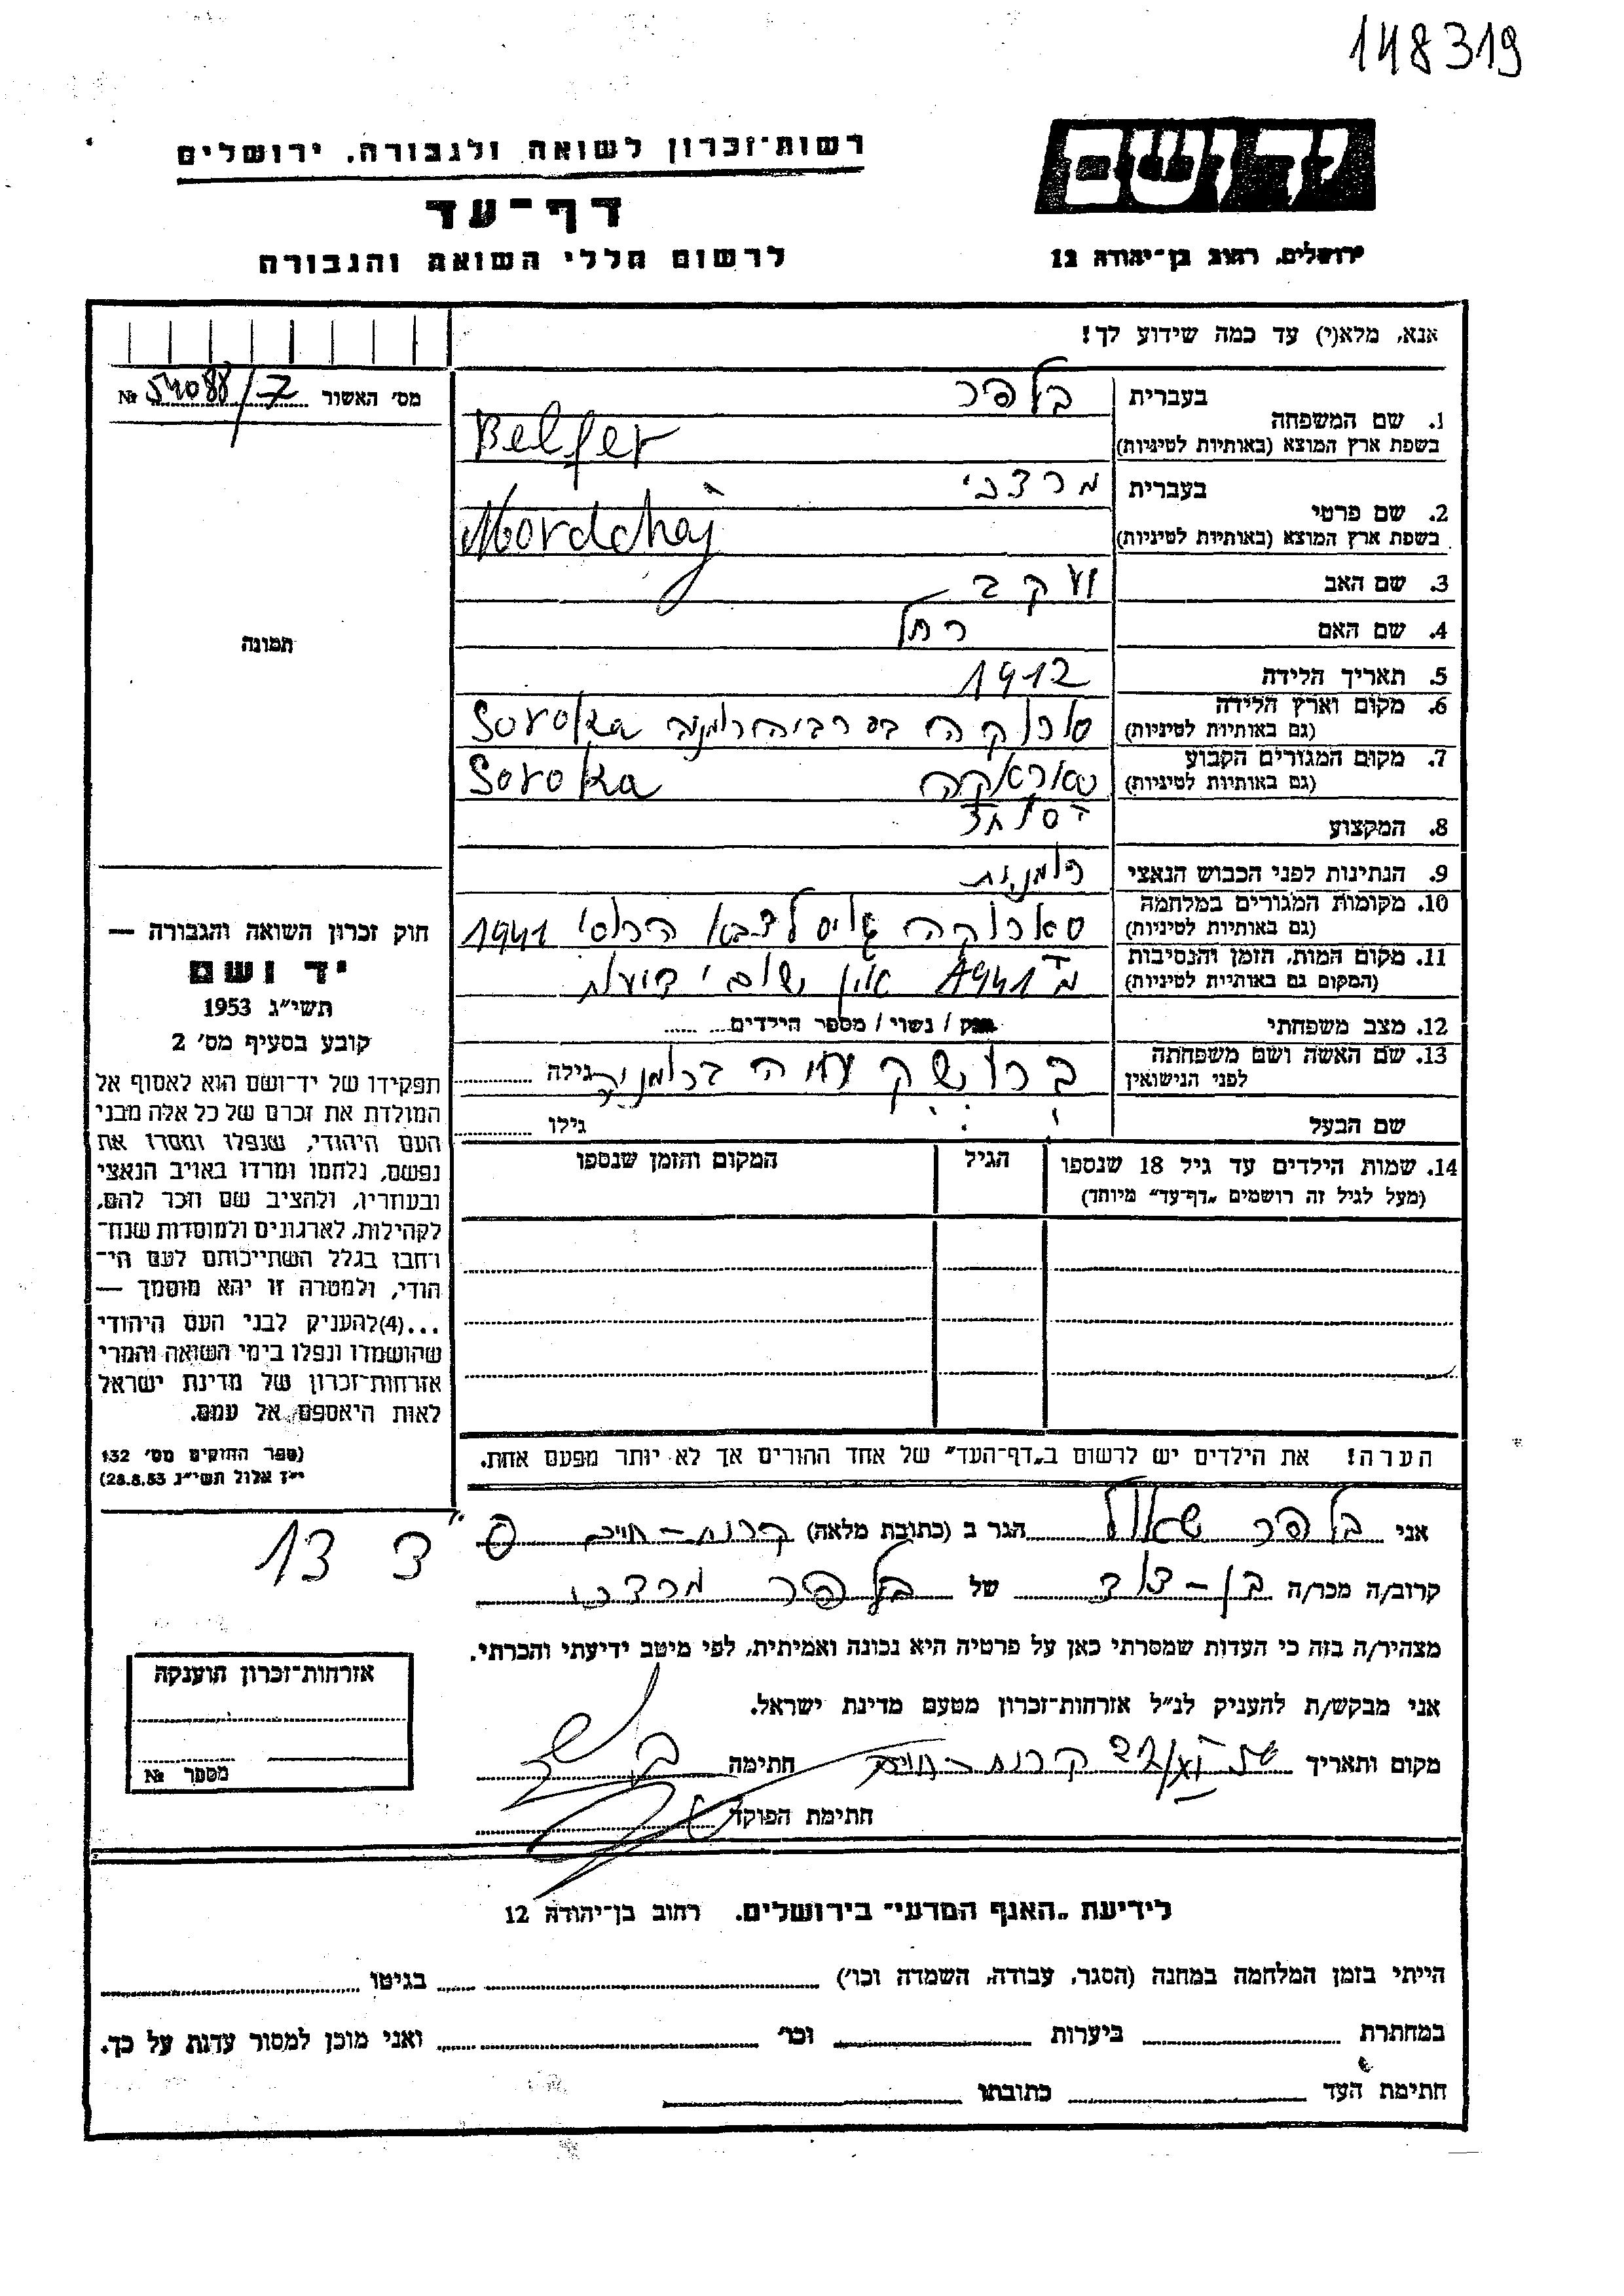 148319
רשות-זכרון לשואה ולגבורה, ירושלים
יד ושם
דף-עד
לרשום חללי השואה והגבורה
ירושלים, רחוב בן-יהודה 12
אנא, מלא(י) עד כמה שידוע לך!
מס׳ האשור № 54088/7
בעברית בלפר
1. שם המשפחה
בשפת ארץ המוצא (באותיות לטיניות) Belfer
בעברית מרדכי
2. שם פרטי
בשפת ארץ המוצא (באותיות לטיניות) Mordchaj
3. שם האב יעקב
4. שם האם רחל
5. תאריך הלידה 1912
6. מקום וארץ הלידה סרוקה בסרביה רומניה Soroka
(גם באותיות לטיניות)
7. מקום המגורים הקבוע סאראקה Soroka
(גם באותיות לטיניות)
8. המקצוע
9. הנתינות לפני הכבוש הנאצי רומנית
10. מקומות המגורים במלחמה סארוקה גויס לצבא הרוסי 1941
(גם באותיות לטיניות)
11. מקום המות, הזמן והנסיבות מ 1941 אין ידיעות
(המקום גם באותיות לטיניות)
12. מצב משפחתי רווק / נשוי / מספר הילדים
13. שם האשה ושם משפחתה ברומניה גילה
לפני הנישואין
שם הבעל גילו
14. שמות הילדים עד גיל 18 שנספו הגיל המקום והזמן שנספו
(מעל לגיל זה רושמים „דף-עד״ מיוחד)
הערה! את הילדים יש לרשום ב„דף-העד״ של אחד ההורים אך לא יותר מפעם אחת.
תמונה
חוק זכרון השואה והגבורה —
יד ושם
תשי״ג 1953
קובע בסעיף מס׳ 2
תפקידו של יד-ושם הוא לאסוף אל
המולדת את זכרם של כל אלה מבני
העם היהודי, שנפלו ומסרו את
נפשם, נלחמו ומרדו באויב הנאצי
ובעוזריו, ולהציב שם וזכר להם,
לקהילות, לארגונים ולמוסדות שנח-
רחבו בגלל השתייכותם לעם הי-
הודי, ולמטרה זו יהא מוסמך —
...(4)להעניק לבני העם היהודי
שהושמדו ונפלו בימי השואה והמרי
אזרחות-זכרון של מדינת ישראל
לאות היאספם אל עמם.
(ספר החוקים מס׳ 132
י״ז אלול תשי״ג 28.8.53)
אני בלפר שאול הגר ב (כתובת מלאה) קרית-חיים 13
קרוב/ה מכר/ה בן-דוד של בלפר מרדכי
מצהיר/ה בזה כי העדות שמסרתי כאן על פרטיה היא נכונה ואמיתית, לפי מיטב ידיעתי והכרתי.
אני מבקש/ת להעניק לנ״ל אזרחות-זכרון מטעם מדינת ישראל.
מקום ותאריך קרית-חיים חתימה
חתימת הפוקד
אזרחות-זכרון הוענקה
מספר №
לידיעת „האגף המדעי״ בירושלים. רחוב בן-יהודה 12
הייתי בזמן המלחמה במחנה (הסגר, עבודה, השמדה וכו׳) בגיטו
במחתרת ביערות וכו׳ ואני מוכן למסור עדות על כך.
חתימת העד כתובתו